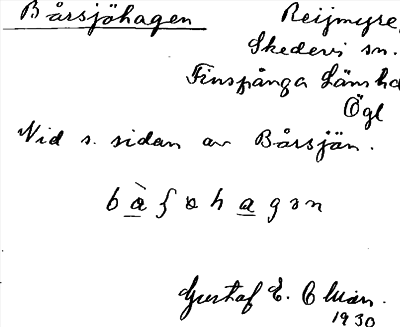 Bårsjöhagen
Reijmyre,
Skedevi sn.
Finspånga Länshd
Ögl
Vid s. sidan av Bårsjön.
Gustaf E.
1930